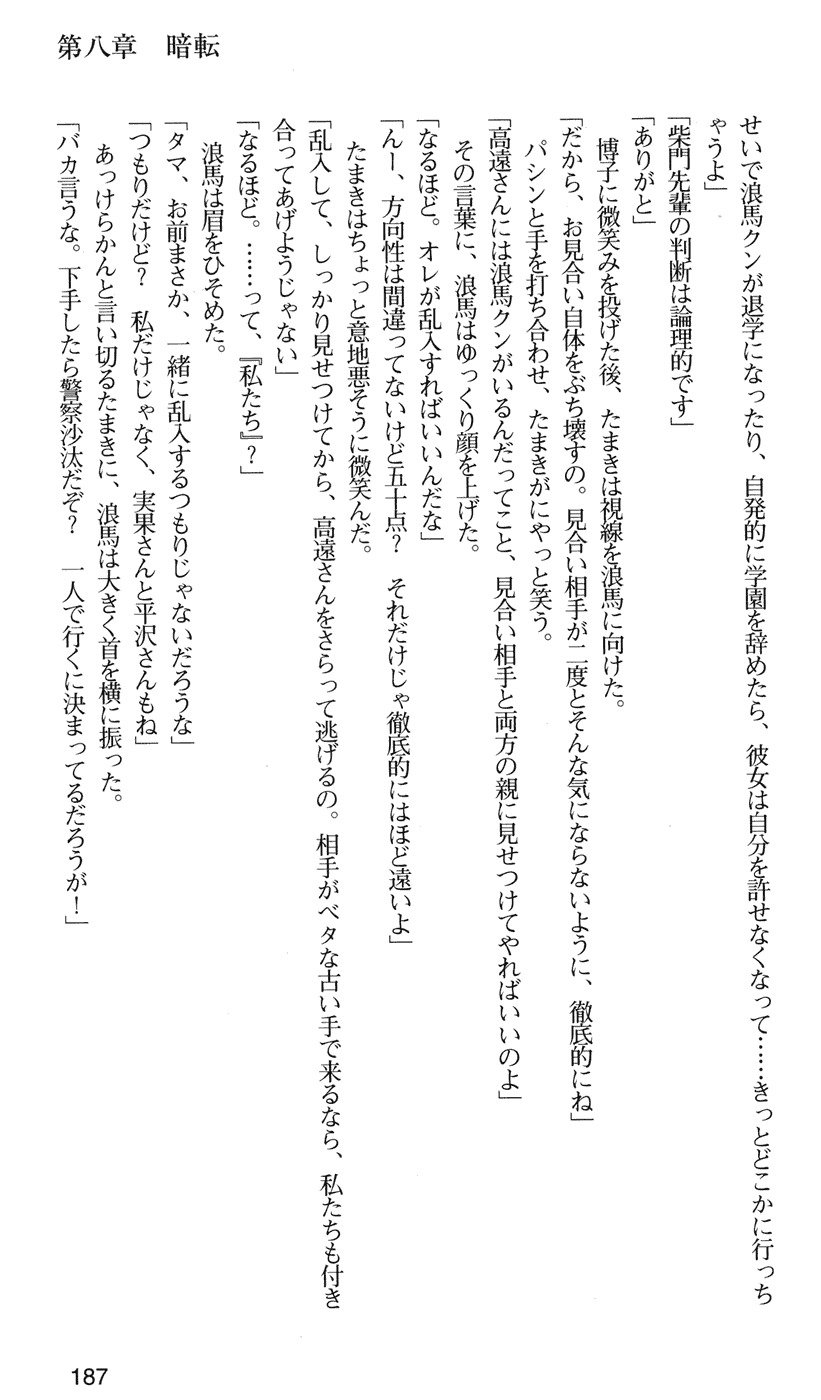 第八章　暗転
せいで浪馬クンが退学になったり、自発的に学園を辞めたら、彼女は自分を許せなくなって……きっとどこかに行っち
ゃうよ」
「柴門先輩の判断は論理的です」
「ありがと」
　博子に微笑みを投げた後、たまきは視線を浪馬に向けた。
「だから、お見合い自体をぶち壊すの。見合い相手が二度とそんな気にならないように、徹底的にね」
　パシンと手を打ち合わせ、たまきがにやっと笑う。
「高遠さんには浪馬クンがいるんだってこと、見合い相手と両方の親に見せつけてやればいいのよ」
　その言葉に、浪馬はゆっくり顔を上げた。
「なるほど。オレが乱入すればいいんだな」
「んー、方向性は間違ってないけど五十点？　それだけじゃ徹底的にはほど遠いよ」
　たまきはちょっと意地悪そうに微笑んだ。
「乱入して、しっかり見せつけてから、高遠さんをさらって逃げるの。相手がベタな古い手で来るなら、私たちも付き
合ってあげようじゃない」
「なるほど。……って、『私たち』？」
　浪馬は眉をひそめた。
「タマ、お前まさか、一緒に乱入するつもりじゃないだろうな」
「つもりだけど？　私だけじゃなく、実果さんと平沢さんもね」
　あっけらかんと言い切るたまきに、浪馬は大きく首を横に振った。
「バカ言うな。下手したら警察沙汰だぞ？　一人で行くに決まってるだろうが！」
187